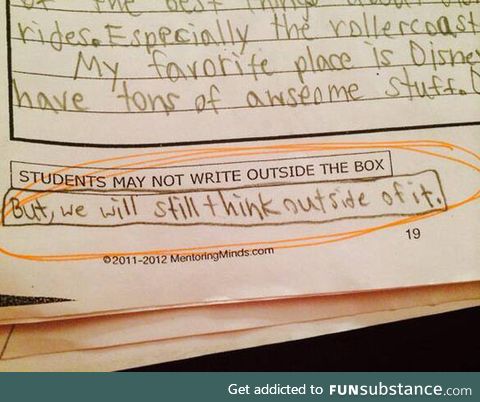 of the best things about
rides. Especially the rollercoast
My favorite place is Disne
have tons of awseome stuff.
STUDENTS MAY NOT WRITE OUTSIDE THE BOX
But, we will still think outside of it.
19
©2011-2012 MentoringMinds.com
Get addicted to FUNsubstance.com